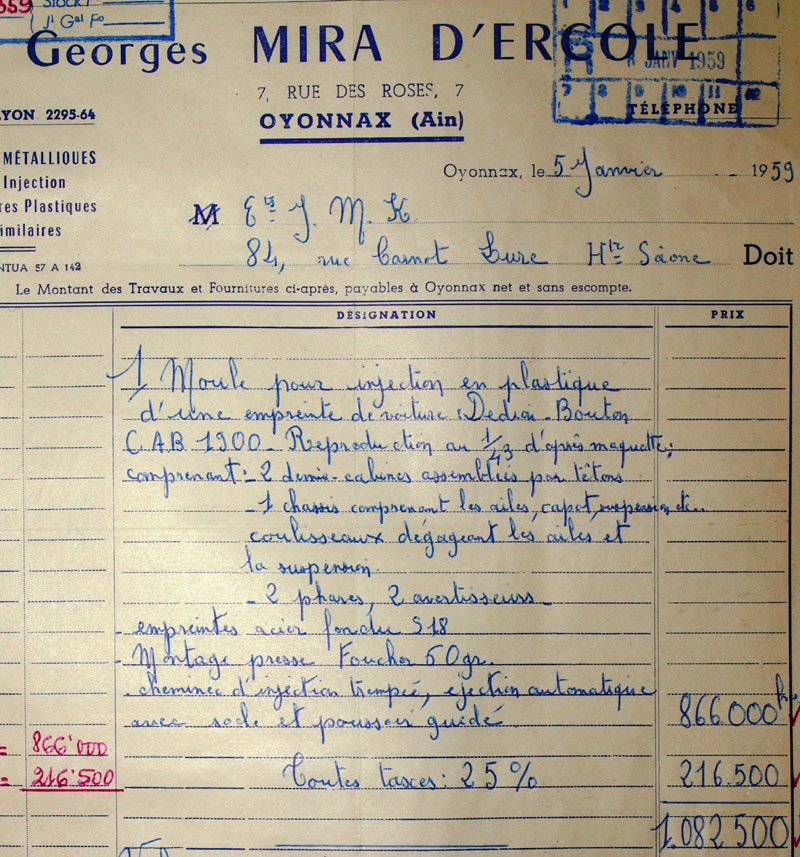 559
STOCK
J¹ Gal Fo
Georges MIRA D'ERCOLE
7, RUE DES ROSES, 7
OYONNAX (Ain)
JANV 1959
7 8 9 10 11 12
TÉLÉPHONE
YON 2295-64
MÉTALLIQUES
Injection
res Plastiques
imilaires
NTUA 57 A 142
Oyonnax, le 5 Janvier 1959
M Ets J. M. K.
84, rue Carnot Lure Hte Saône Doit
Le Montant des Travaux et Fournitures ci-après, payables à Oyonnax net et sans escompte.
DÉSIGNATION PRIX
1 Moule pour injection en plastique
d'une empreinte de voiture : Dedion-Bouton
CAB 1900 - Reproduction au 1/43 d'après maquette ;
comprenant : - 2 demie-cabines assemblées par têtons
- 1 chassis comprenant les ailes, capot, suspension, etc..
coulisseaux dégageant les ailes et
la suspension.
- 2 phares, 2 avertisseurs
- empreintes acier fondu S18
- Montage presse Foucher 60gr.
- cheminée d'injection trempée, ejection automatique
avec socle et poussoir guidé 866.000
= 866'000
= 216'500 Toutes taxes : 25% 216.500
1.082.500